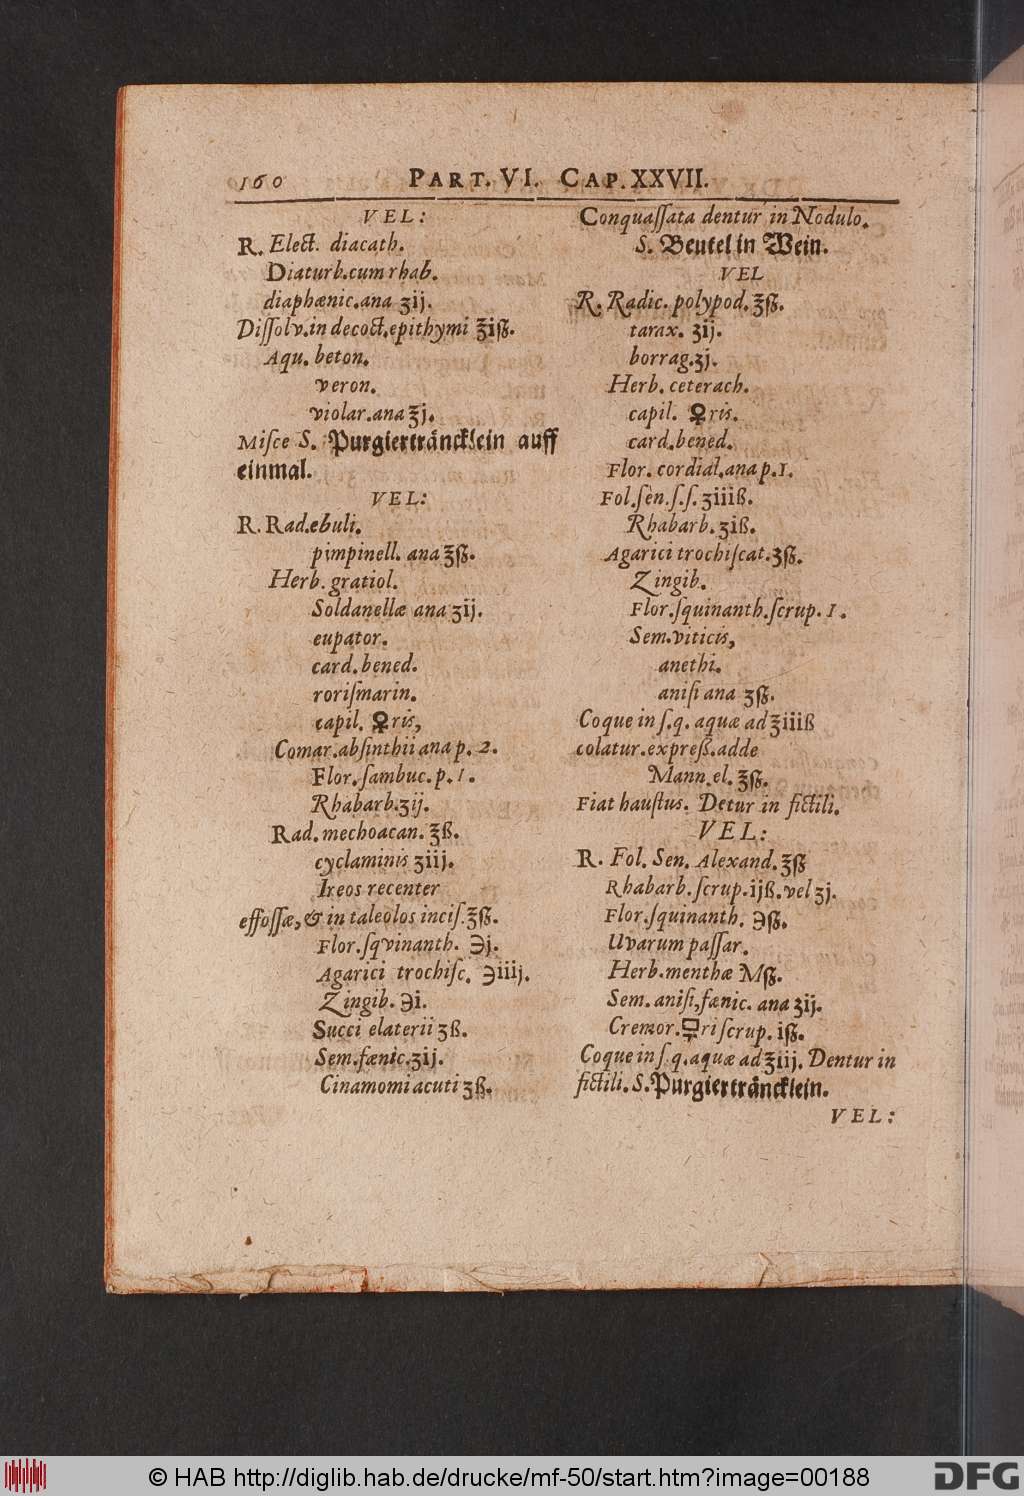 160
PART. VI. CAP. XXVII.
VEL:
R. Elect. diacath.
Diaturb. cum rhab.
diaphænic. ana ʒij.
Diſſolv. in decoct. epithymi ℥iß.
Aqu. beton.
veron.
violar. ana ℥j.
Miſce S. Purgiertråncklein auff
einmal.
VEL:
R. Rad. ebuli.
pimpinell. ana ℥ß.
Herb. gratiol.
Soldanellæ ana ʒij.
eupator.
card. bened.
roriſmarin.
capil. ♀ris,
Comar. abſinthii ana p. 2.
Flor. ſambuc. p. 1.
Rhabarb. ʒij.
Rad. mechoacan. ℥ß.
cyclaminis ʒiij.
Ireos recenter
effoſſæ, & in taleolos inciſ. ℥ß.
Flor. ſqvinanth. ℈j.
Agarici trochiſc. ℈iiij.
Zingib. ℈i.
Succi elaterii ʒß.
Sem. fænic. ʒij.
Cinamomi acuti ʒß.
Conquaſſata dentur in Nodulo.
S. Beutel in Wein.
VEL
R. Radic. polypod. ℥ß.
tarax. ʒij.
borrag. ʒj.
Herb. ceterach.
capil. ♀ris.
card. bened.
Flor. cordial. ana p. 1.
Fol. ſen. ſ. ſ. ʒiiiß.
Rhabarb. ʒiß.
Agarici trochiſcat. ʒß.
Zingib.
Flor. ſquinanth. ſcrup. 1.
Sem. viticis,
anethi.
aniſi ana ʒß.
Coque in ſ. q. aquæ ad ℥iiiß
colatur. expreß. adde
Mann. el. ℥ß.
Fiat hauſtus. Detur in fictili.
VEL:
R. Fol. Sen. Alexand. ℥ß
Rhabarb. ſcrup. ijß. vel ʒj.
Flor. ſquinanth. ℈ß.
Uvarum paſſar.
Herb. menthæ Mß.
Sem. aniſi, fænic. ana ʒij.
Cremor. 🜿ri ſcrup. iß.
Coque in ſ. q. aquæ ad ℥iij. Dentur in
fictili. S. Purgiertråncklein.
VEL:
© HAB http://diglib.hab.de/drucke/mf-50/start.htm?image=00188
DFG